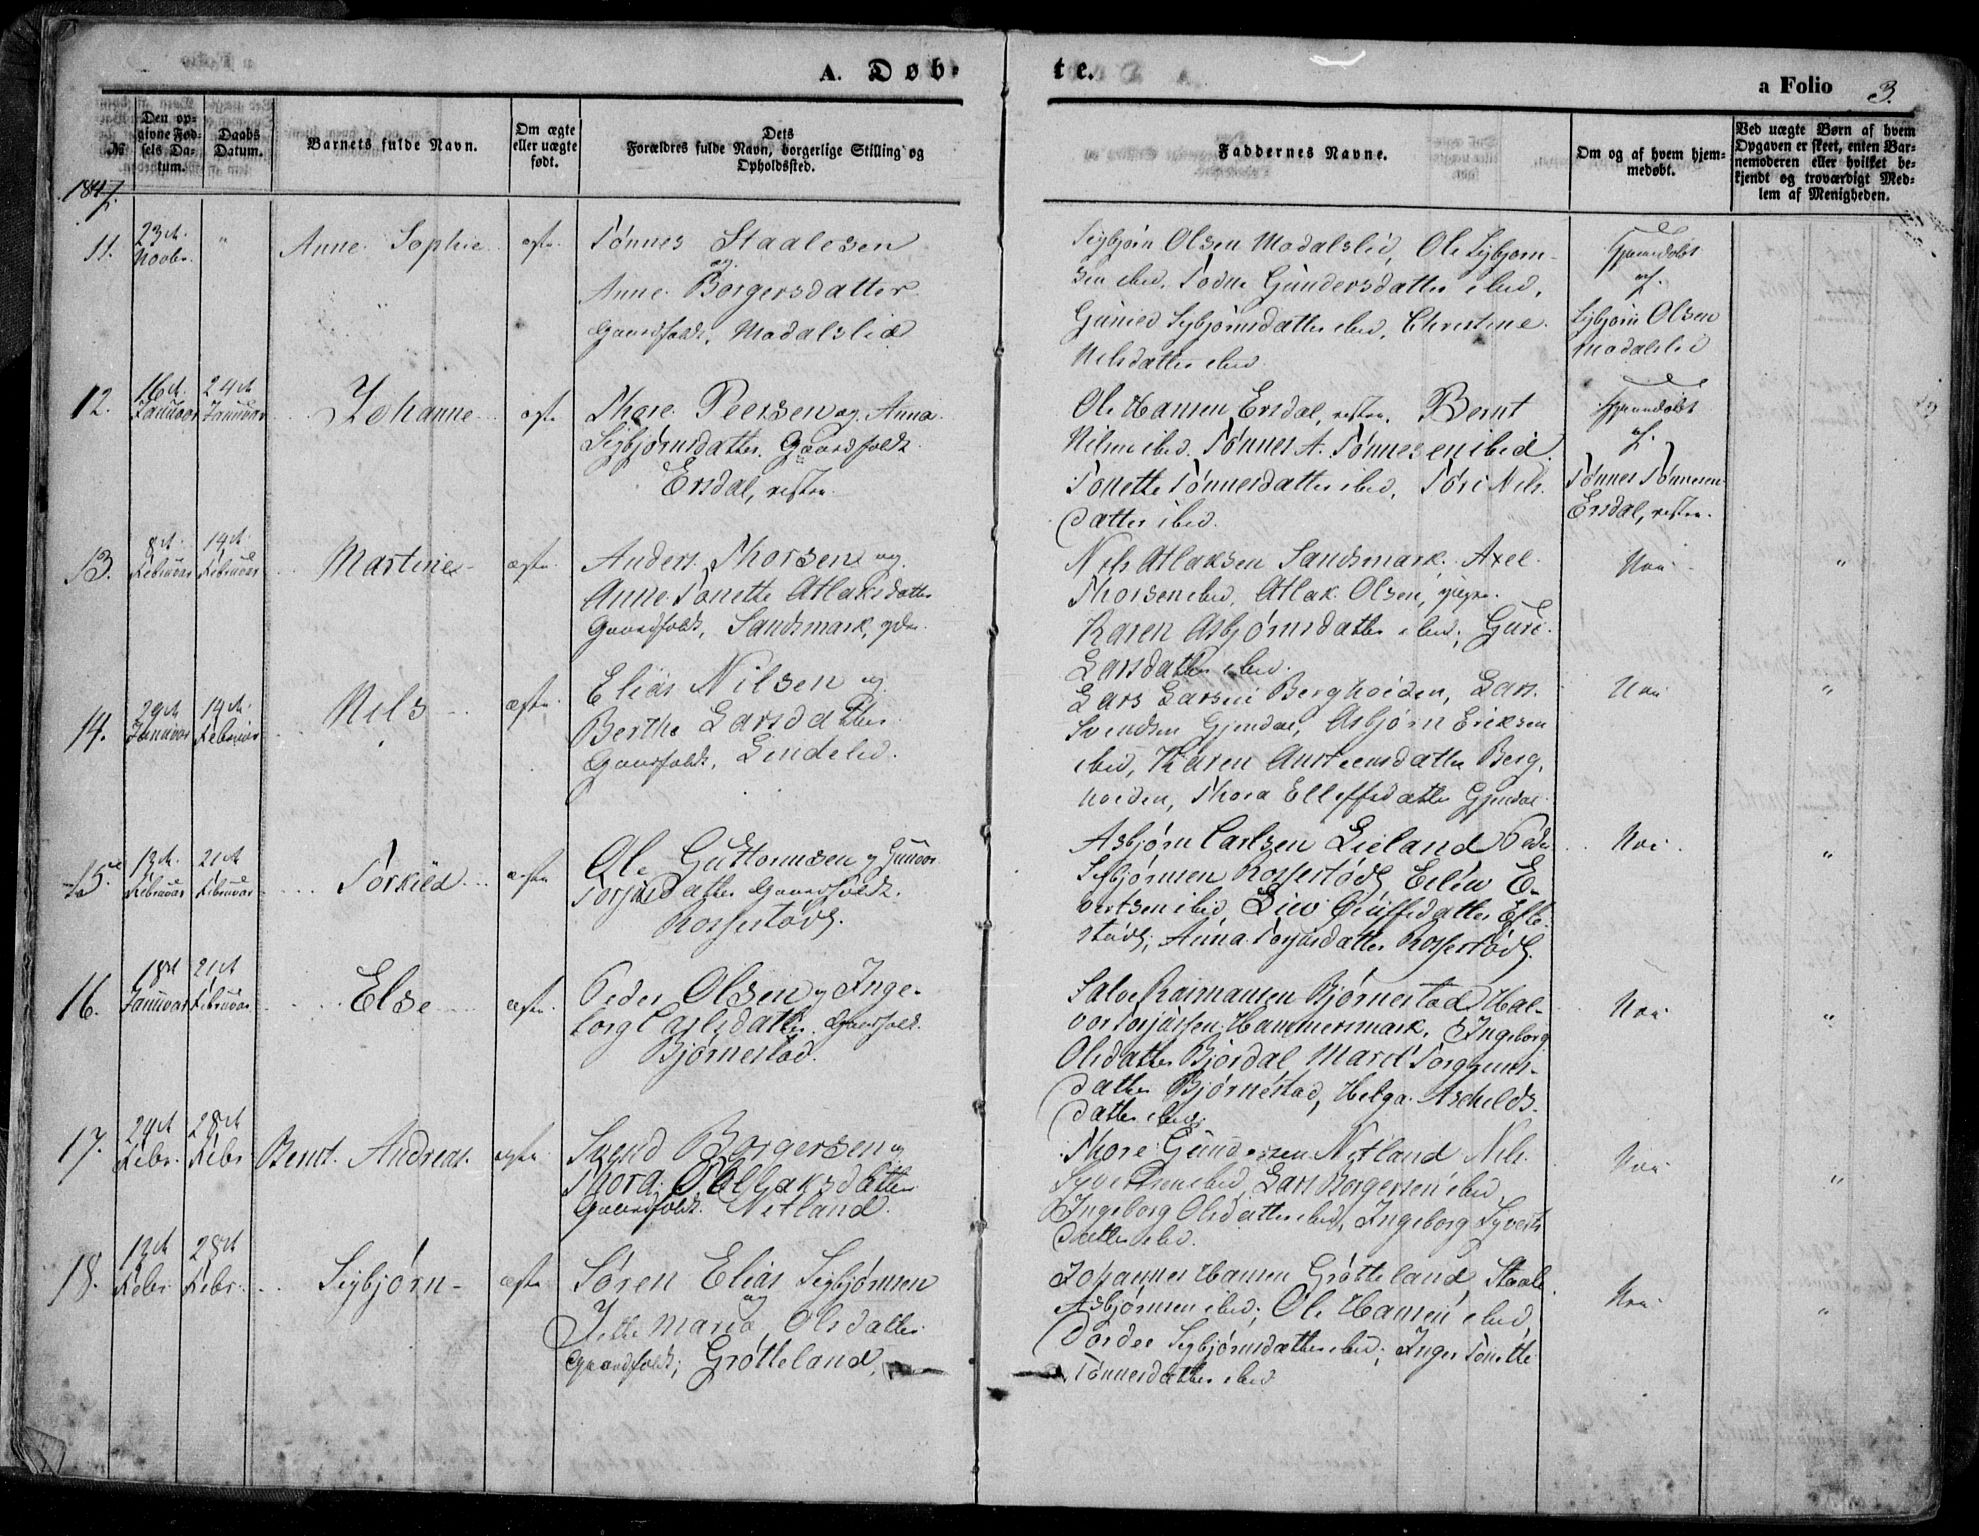 A. Døb-
te.
a Folio 3.
№
Den opgivne Fødsels Datum.
Daabs Datum.
Barnets fulde Navn.
Om ægte eller uægte født.
Dets Forældres fulde Navn, borgerlige Stilling og Opholdssted.
Faddernes Navne.
Om og af hvem hjemmedøbt.
Ved uægte Børn af hvem Opgaven er skeet, enten Barnemoderen eller hvilket bekjendt og troværdigt Medlem af Menigheden.
1847.
11.
23de
Novbr.
"
Anne Sophie
ægte
Tønnes Staalesen
og
Anne Borgersdatter
Gaardfolk, Modalslid
Sigbjørn Olsen Modalslid, Ole Sigbjørn-
sen ibid, Todne Gundersdatter ibid,
Sigbjørnsdatter ibid, Christine
Nilsdatter ibid.
Hjemdøbt
af
Sigbjørn Olsen
Modalslid
12.
16de
Januar
24de
Januar
Johanne
ægte
Thore Peersen og Anna
Sigbjørnsdatter, Gaardfolk
Ersdal, vestre
Ole Hansen Ersdal, vestre, Bernt
Nilsen ibid. Tønnes A. Tønnesen ibid.
Tonette Tønnesdatter ibid, Tøri Nils-
datter ibid.
Hjemdøbt
af
Tønnes Tønnesen
Ersdal, vestre.
13.
8de
Februar
14de
Februar
Martine
ægte
Anders Thorsen og
Anne Tonette Atlaksdatter
Gaardfolk, Sandsmark,
Nils Atlaksen Sandsmark, Axel
Thorsen ibid, Atlak Olsen,
Karen Asbjørnsdatter ibid, Guri
Larsdatter ibid.
Nei
"
14.
29de
Januar
14de
Februar
Nils
ægte
Elias Nilsen og
Berthe Larsdatter
Gaardfolk, Lindelid.
Lars Larsen Bergheiden, Lars
Svendsen Gjendal, Asbjørn Eriksen
ibid, Karen Austeensdatter Berg-
heiden, Thora Elleffsdatter Gjendal
Nei
"
15.
13de
Februar
21de
Februar
Torkild
ægte
Ole Guttormsen og Gunvor
Torjusdatter Gaardfolk
Rossestødl.
Asbjørn Carlsen Lieland Peder
Sigbjørnsen Rossestødl E-
vertsen ibid, Liv datter Efte-
stødl, Anna Torjusdatter Rossestødl.
Nei
"
16.
18de
Januar
21de
Februar
Else
ægte
Peder Olsen og Inge-
borg Carlsdatter, Gaardfolk
Bjørnestad.
Salve Bjørnestad Hal-
vor Torjussen Hammersmark, Ingeborg
Olsdatter Bjordal
datter Bjørnestad, Helga Aschilds-
datter ibid.
Nei
"
17.
24de
Febr.
28de
Febr
Bernt Andreas
ægte
Svend Borgersen og
Thora datter
Gaardfolk. Netland.
Thore Gundersen Netland Nils
Syvertsen ibid, Lars Borgersen ibid
Ingeborg Olsdatter ibid, Ingeborg Syverts-
datter ibid.
Nei
"
18.
13de
Febr
28de
Febr.
Sigbjørn
ægte
Søren Elias Sigbjørnsen
og
Jette Maria Olsdatter
Gaardfolk, Grøtteland.
Johannes Hansen Grøtteland, Staale
Asbjørnsen ibid, Ole Hansen ibid,
Tordee Sigbjørnsdatter ibid, Inger Tonette
Tønnesdatter ibid
Nei
"